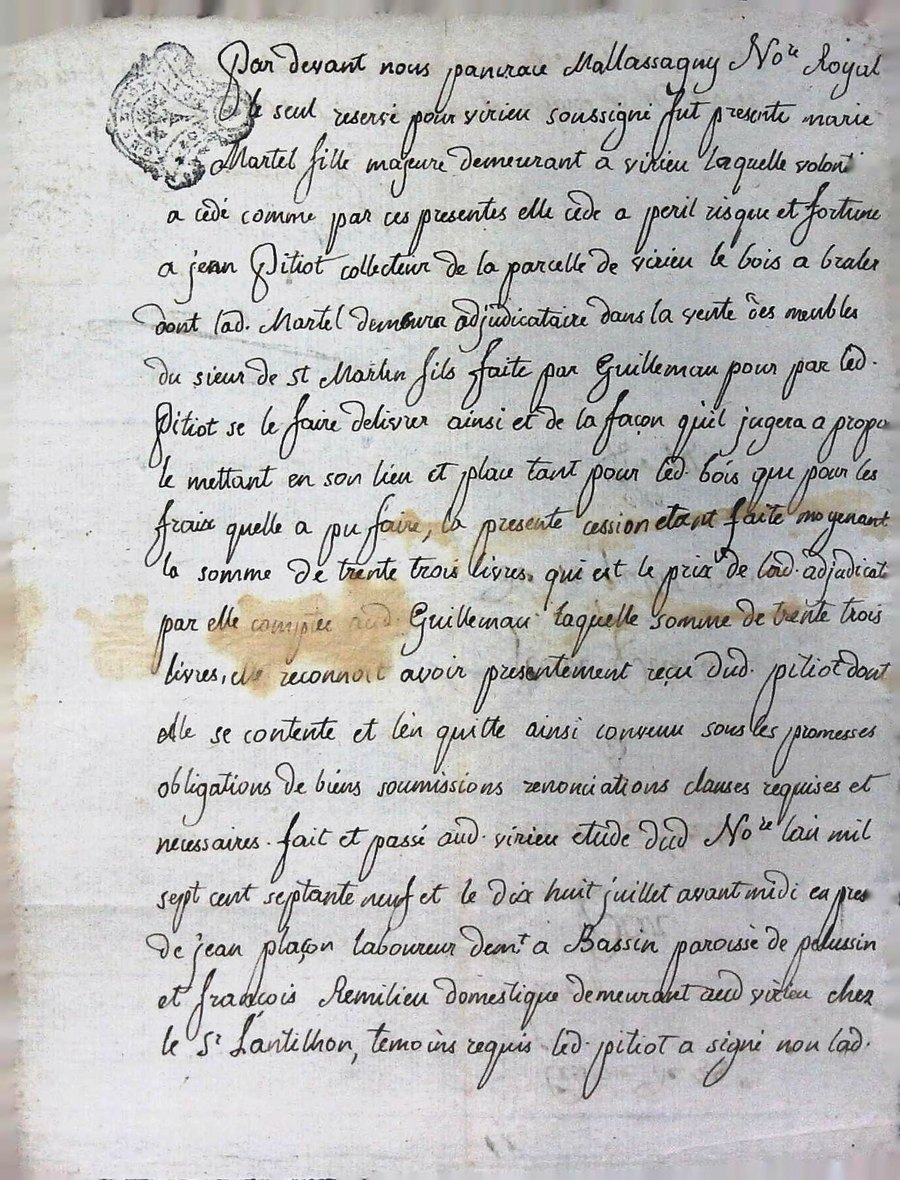 Par devant nous pancrace Mallassagny No.re Royal
le seul reservé pour virieu soussigné fut presente marie
Martel fille majeure demeurant a virieu laquelle volont
a cédé comme par ces presentes elle cède a peril risque et fortune
a jean Pitiot collecteur de la parcelle de virieu le bois a bruler
dont lad. Martel demeura adjudicataire dans la vente des meubles
du sieur de st Martin fils faite par Guillemau pour par led.
Pitiot se le faire delivrer ainsi et de la façon quil jugera a propo
le mettant en son lieu et place tant pour led. bois que pour les
fraix quelle a pu faire, la presente cession etant faite moyenant
la somme de trente trois livres, qui est le prix de lad. adjudicat
par elle comptée aud. Guillemau laquelle somme de trente trois
livres, elle reconnoit avoir presentement reçu dud. pitiot dont
elle se contente et len quitte ainsi convenu sous les promesses
obligations de biens soumissions renonciations clauses requises et
necessaires. fait et passé aud. virieu etude dud No.re lan mil
sept cent septante neuf et le dix huit juillet avant midi en pres
de jean plaçon laboureur dem.t a Bassin paroisse de pelussin
et françois Remilieu domestique demeurant aud virieu chez
le S.r Lantilhon, temoins requis led. pitiot a signé non lad.